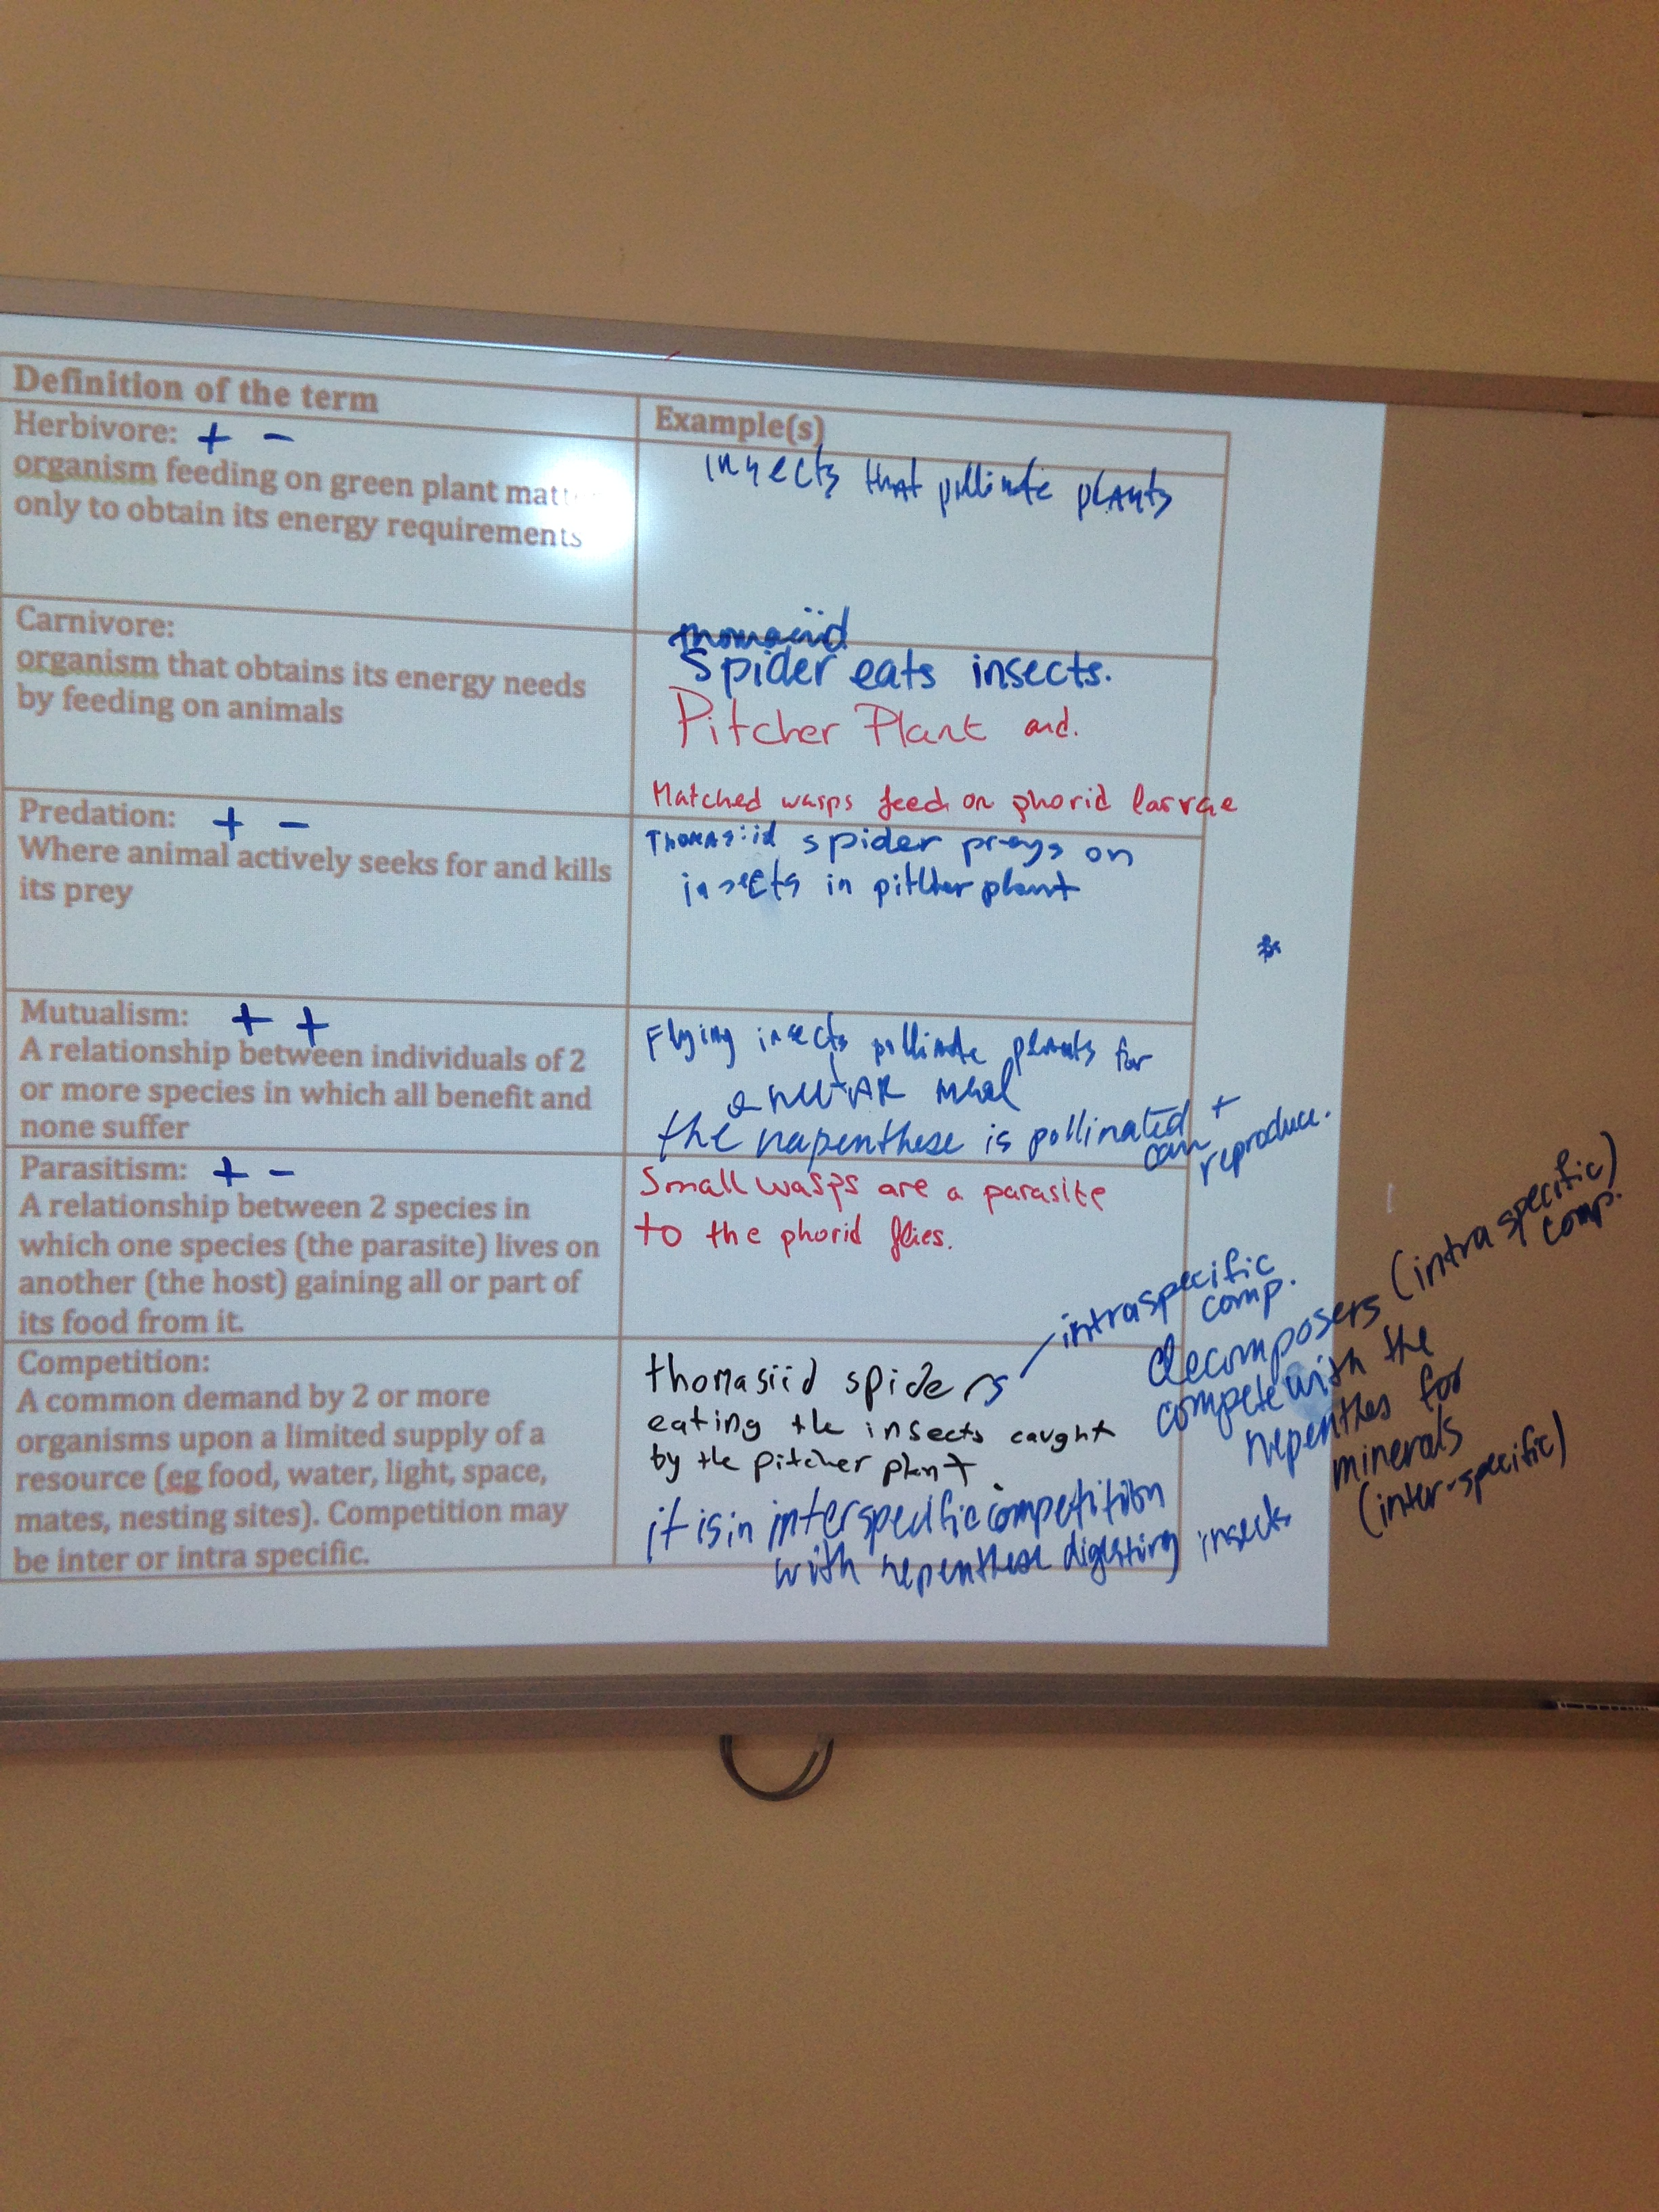 Definition of the term
Example(s)
Herbivore: + -
organism feeding on green plant matt
only to obtain its energy requirements
insects that pollinate plants
Carnivore:
organism that obtains its energy needs
by feeding on animals
Spider eats insects.
Pitcher Plant and.
Matched wasps feed on phorid larvae
Predation: + -
Where animal actively seeks for and kills
its prey
Thomasiid spider preys on
insects in pitcher plant
*
Mutualism: + +
A relationship between individuals of 2
or more species in which all benefit and
none suffer
Flying insects pollinate plants for
a nectar meal
the napenthese is pollinated +
can reproduce.
Parasitism: + -
A relationship between 2 species in
which one species (the parasite) lives on
another (the host) gaining all or part of
its food from it.
Small wasps are a parasite
to the phorid flies.
Competition:
A common demand by 2 or more
organisms upon a limited supply of a
resource (eg food, water, light, space,
mates, nesting sites). Competition may
be inter or intra specific.
thomasiid spiders
eating the insects caught
by the pitcher plant.
it is in interspecific competition
with nepenthese digesting insects
intraspecific
comp.
decomposers (intra specific)
comp.
compete with the
nepenthes for
minerals
(inter-specific)